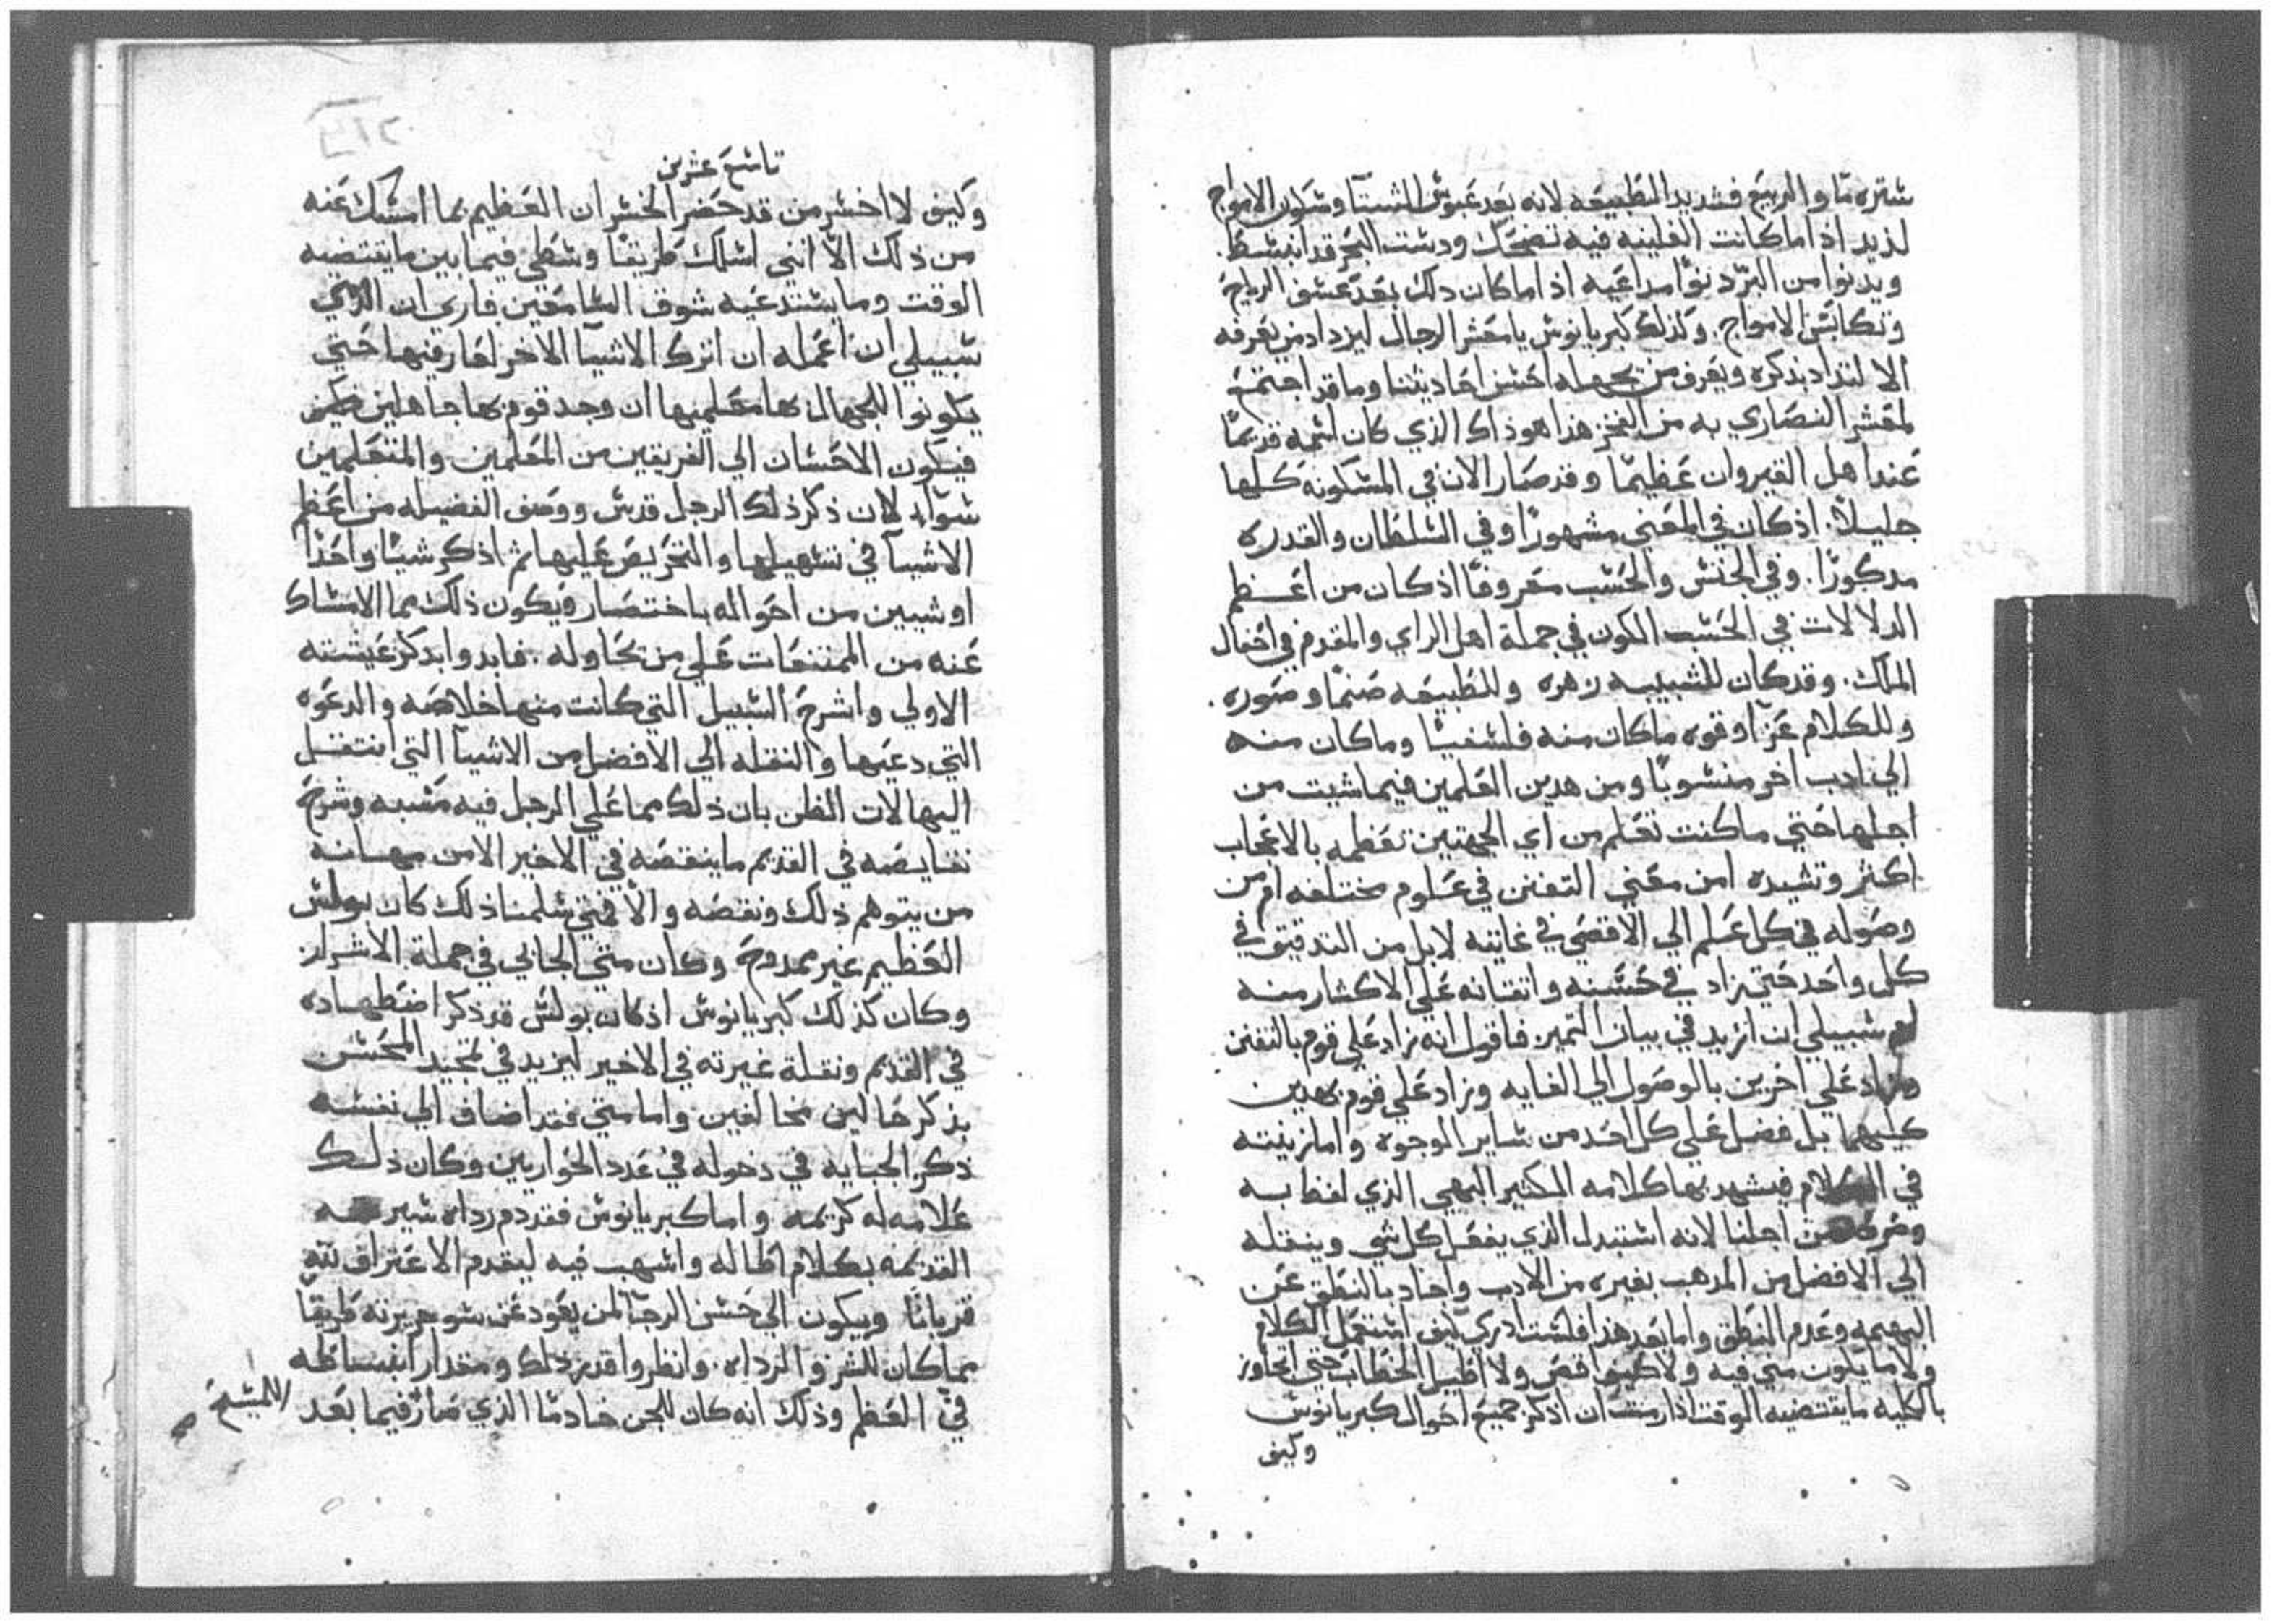 شتره ما والربيع فشديد الطبيعه لانه بعد عبوش الشتآ وشكون الامواج
لذيد اذا ما كانت الغلينيه فيه تضحك ودشت البحر قد انبشط.
ويدنوا من البرّ دنوّا مداعيه اذا ما كان دلك بعد عشف الرياح
وتكابش الامواج. وكذلك كبريانوش يا معشر الرجال ليزداد من يعرفه
الالتداد بدكره ويعرف من يجهله احشن احاديثنا وما قد اجتمع
لمعشر النصاري به من الفخر هذا هو ذاك الذي كان اشمه قديمًا
عند اهل القيروان عظيمًا وقد صار الان في المشكونه كلها
جليلاً. اذ كان في المعني مشهورًا وفي الشلطان والقدره
مدكورًا. وفي الجنش والحشب معروفًا اذ كان من اعظم
الدلالات في الحشب الكون في جملة اهل الراي والمقدم في احفال
الملك. وقد كان للشبيبه زهره وللطبيعه صنمًا وصوره.
وللكلام عزّا وقوه ما كان منه فلشفيًا وما كان منه
الي ادب اخر منشوبًا ومن هدين العلمين فيما شيت من
اجلها حتي ما كنت تعلم من اي الجهتين تعظمه بالاعجاب
اكثر وتشيده امن معني التفنن في علوم مختلفه ام من
وصوله في كل علم الي الاقصي في غايته لا بل من التدقيق في
كل واحد حتي زاد في حشنه واتقانه علي الاكثار منه
شبيلي ان ازيد في بيان التميز فاقول انه زاد علي قوم بالتفنن
وزاد علي اخرين بالوصول الي الغايه وزاد علي قوم بهدين
كليهما بل فضل علي كل احد من شاير الوجوه واما زينته
في الكلام فيشهد بها كلامه الكثير البهي الذي لفظ به
من اجلنا لانه اشتبدل الذي يفعل كل شي وينقله
الي الافضل من المدهب بغيره من الادب واحاد بالنطق عن
البهيمه وعدم النطق واما بعد هذا فلشت ادري كيف اشتعمل الكلام
ولا ما يكون مني فيه ولا كيف اقص ولا اطيل الخطاب حتي اتجاوز
بالكليه ما يقتضيه الوقت اذا رمت ان اذكر جميع احوال كبريانوش
وكيف
تاشع عشرين
وكيف لا اخشر من قد حضر الخشران العظيم بما امشك عنه
من ذلك الاّ انني اشلك طريقًا وشطي فيما بين ما يقتضيه
الوقت وما يشتدعيه شوف الشامعين فاري ان الذي
شبيلي ان اعمله ان اترك الاشيآ الاخر لعارفيها حتي
يكونوا للجهال بها معلميها ان وجد قوم بها جاهلين
فيكون الاحشان الي الفريقين من المعلمين والمتعلمين
شوآء لان ذكر ذلك الرجل قدش ووصف الفضيله من اعظم
الاشيآ في تشهيلها والتحريص عليها ثم اذكر شيئًا واحدًا
او شيين من احواله باختصار ويكون ذلك مما الامشاك
عنه من الممتنعات علي من يحاوله. فابدوا بدكر عيشته
الاولي واشرح الشبيل التي كانت منها خلاصه والدعوه
التي دعيها والنقله الي الافضل من الاشيآ التي انتقل
اليها لات الظن بان ذلك مما علي الرجل فيه مشبه وشرح
نقايصه في القديم ما ينقصه في الاخير الامن مهانه
من يتوهم ذلك ونقصه والا فمتي شلمنا ذلك كان بولش
العظيم غير ممدوح وكان متي الجابي في جملة الاشرار
وكان كذلك كبريانوش اذ كان بولش قد ذكر اضطهاده
في القديم ونقلة غيرته في الاخير ليزيد في تمجيد المحشن
بذكر حالين مخالفين واما متي فقد اضاف الي نفشه
ذكر الجبايه في دخوله في عدد الحواريين وكان ذلك
علامه له كريمه واما كبريانوش فقد دم رداه شيرته
القديمه بكلام اطاله واشهب فيه ليقدم الاعتراف لله
قربانًا ويكون الي حشن الرجآ لمن يعود عن شو جريرته طريقًا
مما كان للشر والرداه. وانظروا قدر ذلك ومقدار انبشاطه
في العظم وذلك انه كان للجن خادمًا الذي صار فيما بعد
للمشيح